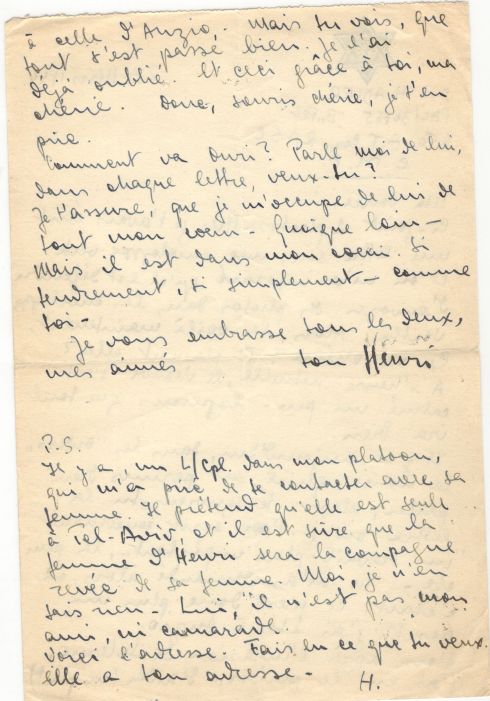 à celle d'Anzio. Mais tu vois, que
tout s'est passé bien. Je l'ai
déjà oublié. Et ceci grâce à toi, ma
chérie. Donc, souris chérie, je t'en
prie.
Comment va Ouri? Parle moi de lui,
dans chaque lettre, veux-tu?
Je t'assure, que je m'occupe de lui de
tout mon coeur. Quoique loin -
Mais il est dans mon coeur. Si
tendrement, si simplement - comme
toi -
Je vous embrasse tous les deux,
mes aimés ton Henri
P.S.
Il y a, un L/Cpl. dans mon platoon,
qui m'a prié de te contacter avec sa
femme. Il prétend qu'elle est seule
à Tel-Aviv, et il est sûre que la
femme d'Henri sera la compagne
revée de sa femme. Moi, je n'en
sais rien - Lui, il n'est pas mon
ami, ni camarade.
Voici l'adresse. Fais en ce que tu veux.
Elle a ton adresse - H.